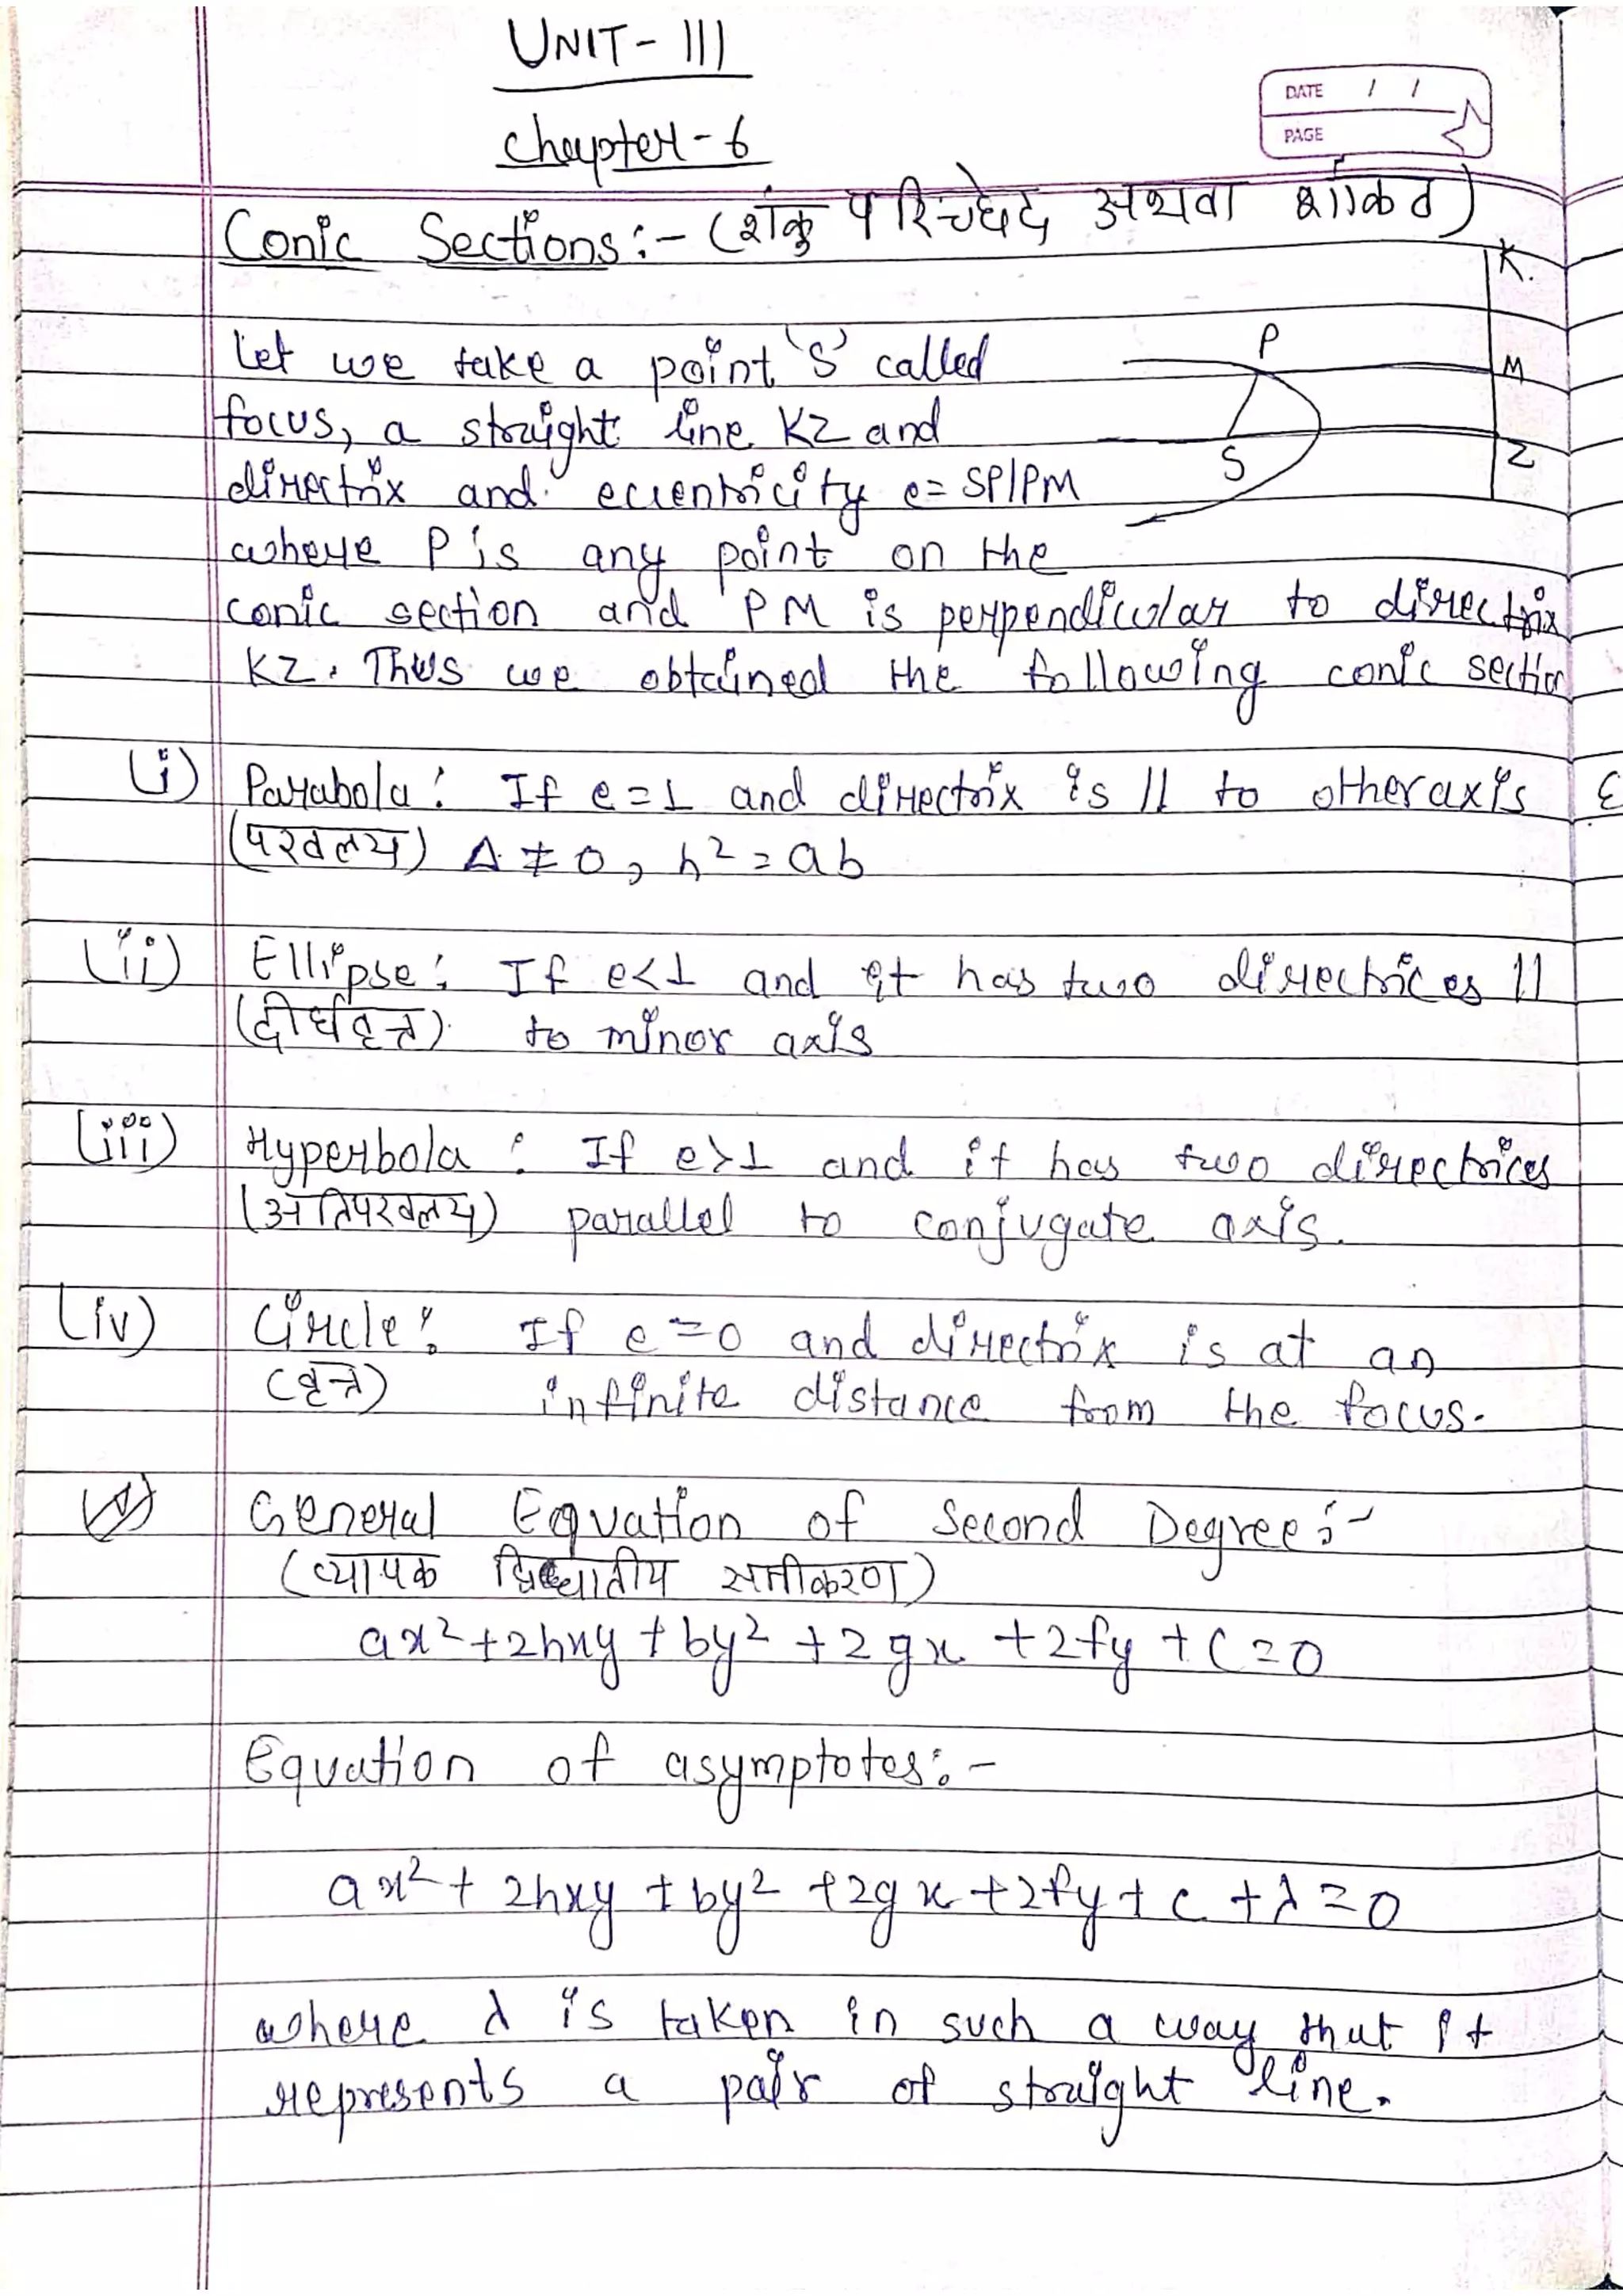 UNIT-III
DATE / /
PAGE
Chapter-6
Conic Sections:- (शंकु परिच्छेद अथवा शांकव)
K.
Let we take a point 'S' called
P
M
focus, a straight line KZ and
S
Z
directrix and eccentricity e= SP/PM
where P is any point on the
conic section and PM is perpendicular to directrix
KZ. Thus we obtained the following conic section
(i) Parabola: If e=1 and directrix is || to other axis
(परवलय) Δ ≠ 0, h² = ab
(ii) Ellipse: If e<1 and it has two directrices ||
(दीर्घवृत्त) to minor axis
(iii) Hyperbola: If e>1 and it has two directrices
(अतिपरवलय) parallel to conjugate axis.
(iv) Circle: If e=0 and directrix is at an
(वृत्त) infinite distance from the focus.
General Equation of Second Degree:-
(व्यापक द्विघातीय समीकरण)
ax²+2hxy+by²+2gx+2fy+c=0
Equation of asymptotes:-
ax²+2hxy+by²+2gx+2fy+c+λ=0
where λ is taken in such a way that it
represents a pair of straight line.